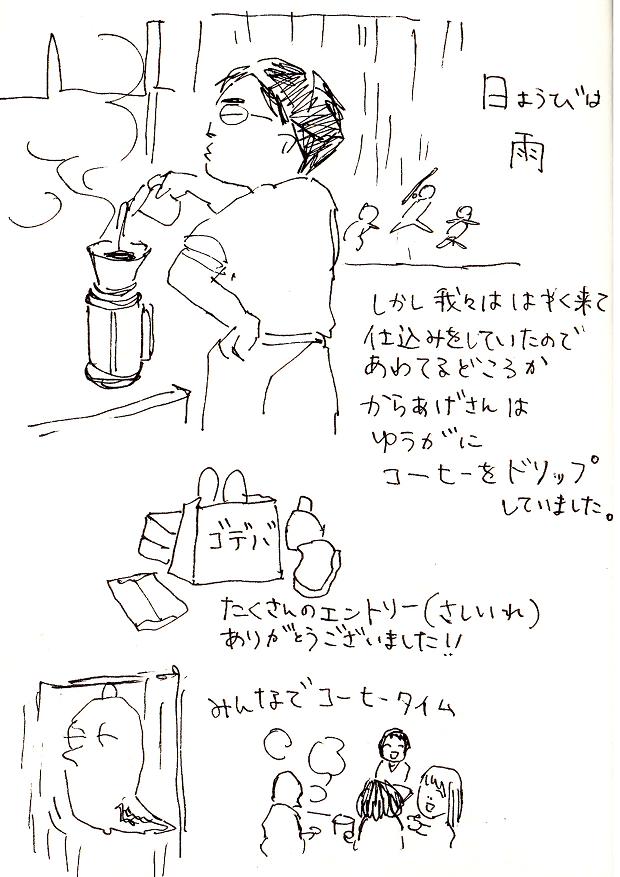 日ようびは
雨
しかし我々ははやく来て
仕込みをしていたので
あわてるどころか
からあげさんは
ゆうがに
コーヒーをドリップ
していました。
ゴデバ
たくさんのエントリー(さしいれ)
ありがとうございました!!
みんなでコーヒータイム